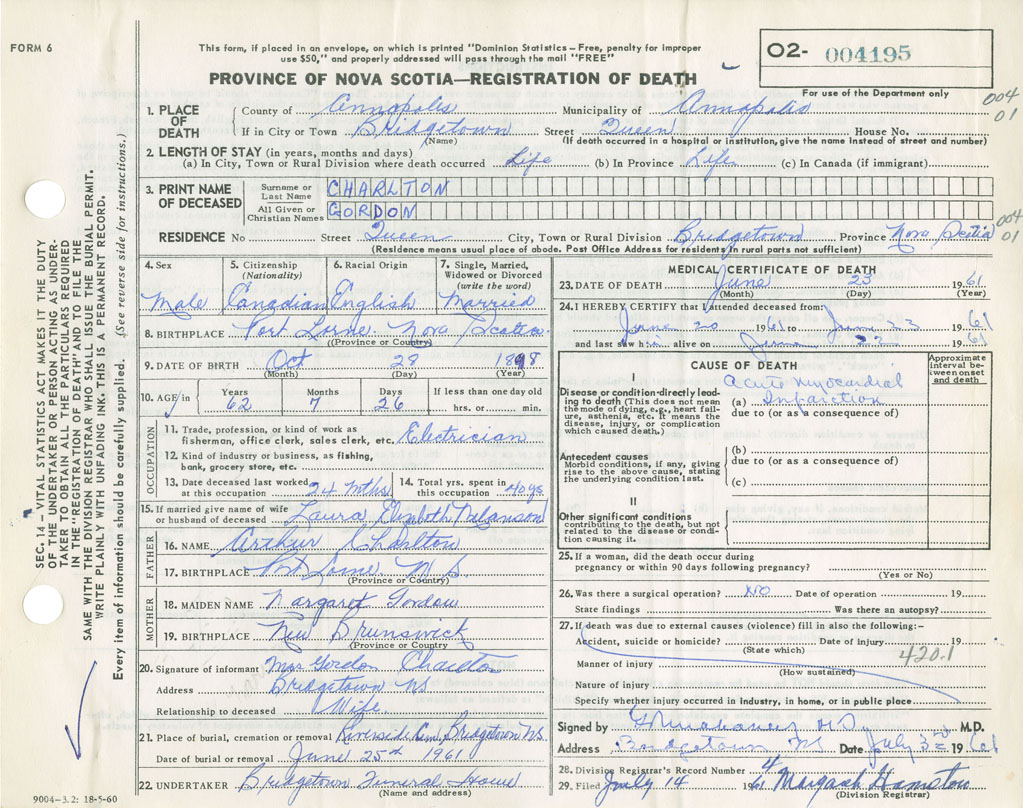 FORM 6
This form, if placed in an envelope, on which is printed "Dominion Statistics – Free, penalty for improper
use $50," and properly addressed will pass through the mail "FREE"
O2- 004195
For use of the Department only
PROVINCE OF NOVA SCOTIA—REGISTRATION OF DEATH
004
01
1. PLACE OF DEATH
County of Annapolis Municipality of Annapolis
If in City or Town Bridgetown Street Queen House No.
(Name) (If death occurred in a hospital or institution, give the name instead of street and number)
2. LENGTH OF STAY (in years, months and days)
(a) In City, Town or Rural Division where death occurred Life (b) In Province Life (c) In Canada (if immigrant)
3. PRINT NAME OF DECEASED
Surname or Last Name CHARLTON
All Given or Christian Names GORDON
004
01
RESIDENCE No Street Queen City, Town or Rural Division Bridgetown Province Nova Scotia
(Residence means usual place of abode. Post Office Address for residents in rural part not sufficient)
4. Sex Male
5. Citizenship (Nationality) Canadian
6. Racial Origin English
7. Single, Married, Widowed or Divorced (write the word) Married
8. BIRTHPLACE Port Lorne Nova Scotia
(Province or Country)
9. DATE OF BIRTH Oct 28 1898
(Month) (Day) (Year)
10. AGE in Years 62 Months 7 Days 26 If less than one day old hrs. or min.
OCCUPATION
11. Trade, profession, or kind of work as
fisherman, office clerk, sales clerk, etc. Electrician
12. Kind of industry or business, as fishing,
bank, grocery store, etc.
13. Date deceased last worked
at this occupation 24 mths
14. Total yrs. spent in
this occupation 40 yrs
15. If married give name of wife
or husband of deceased Laura Elizabeth Melanson
FATHER
16. NAME Arthur Charlton
17. BIRTHPLACE Port Lorne N S
(Province or Country)
MOTHER
18. MAIDEN NAME Margaret Gordon
19. BIRTHPLACE New Brunswick
(Province or Country)
20. Signature of informant Mrs Gordon Charlton
Address Bridgetown NS
Relationship to deceased Wife
21. Place of burial, cremation or removal Riverside Cem, Bridgetown NS
Date of burial or removal June 25th 1961
22. UNDERTAKER Bridgetown Funeral Home
(Name and address)
9004–3.2: 18-5-60
MEDICAL CERTIFICATE OF DEATH
23. DATE OF DEATH June 23 1961
(Month) (Day) (Year)
24. I HEREBY CERTIFY that I attended deceased from:
June 20 1961 to June 23 1961
and last saw him alive on June 23 1961
CAUSE OF DEATH
Approximate interval between onset and death
I
Disease or condition directly leading to death (This does not mean the mode of dying, e.g., heart failure, asthenia, etc. It means the disease, injury, or complication which caused death.)
Acute Myocardial
(a) Infarction
due to (or as a consequence of)
Antecedent causes
Morbid conditions, if any, giving rise to the above cause, stating the underlying condition last.
(b)
due to (or as a consequence of)
(c)
II
Other significant conditions
contributing to the death, but not related to the disease or condition causing it.
25. If a woman, did the death occur during
pregnancy or within 90 days following pregnancy?
(Yes or No)
26. Was there a surgical operation? NO Date of operation 19
State findings Was there an autopsy?
27. If death was due to external causes (violence) fill in also the following:–
Accident, suicide or homicide? Date of injury 19
(State which)
420.1
Manner of injury
(How sustained)
Nature of injury
Specify whether injury occurred in industry, in home, or in public place
Signed by M.D.
Address Bridgetown NS Date July 3rd 1961
28. Division Registrar's Record Number 4
29. Filed July 14 1961 Hamilton
(Division Registrar)
SEC. 14 – VITAL STATISTICS ACT MAKES IT THE DUTY
OF THE UNDERTAKER OR PERSON ACTING AS UNDER-
TAKER TO OBTAIN ALL THE PARTICULARS REQUIRED
IN THE "REGISTRATION OF DEATH" AND TO FILE THE
SAME WITH THE DIVISION REGISTRAR WHO SHALL ISSUE THE BURIAL PERMIT.
WRITE PLAINLY WITH UNFADING INK. THIS IS A PERMANENT RECORD.
Every item of information should be carefully supplied. (See reverse side for instructions.)